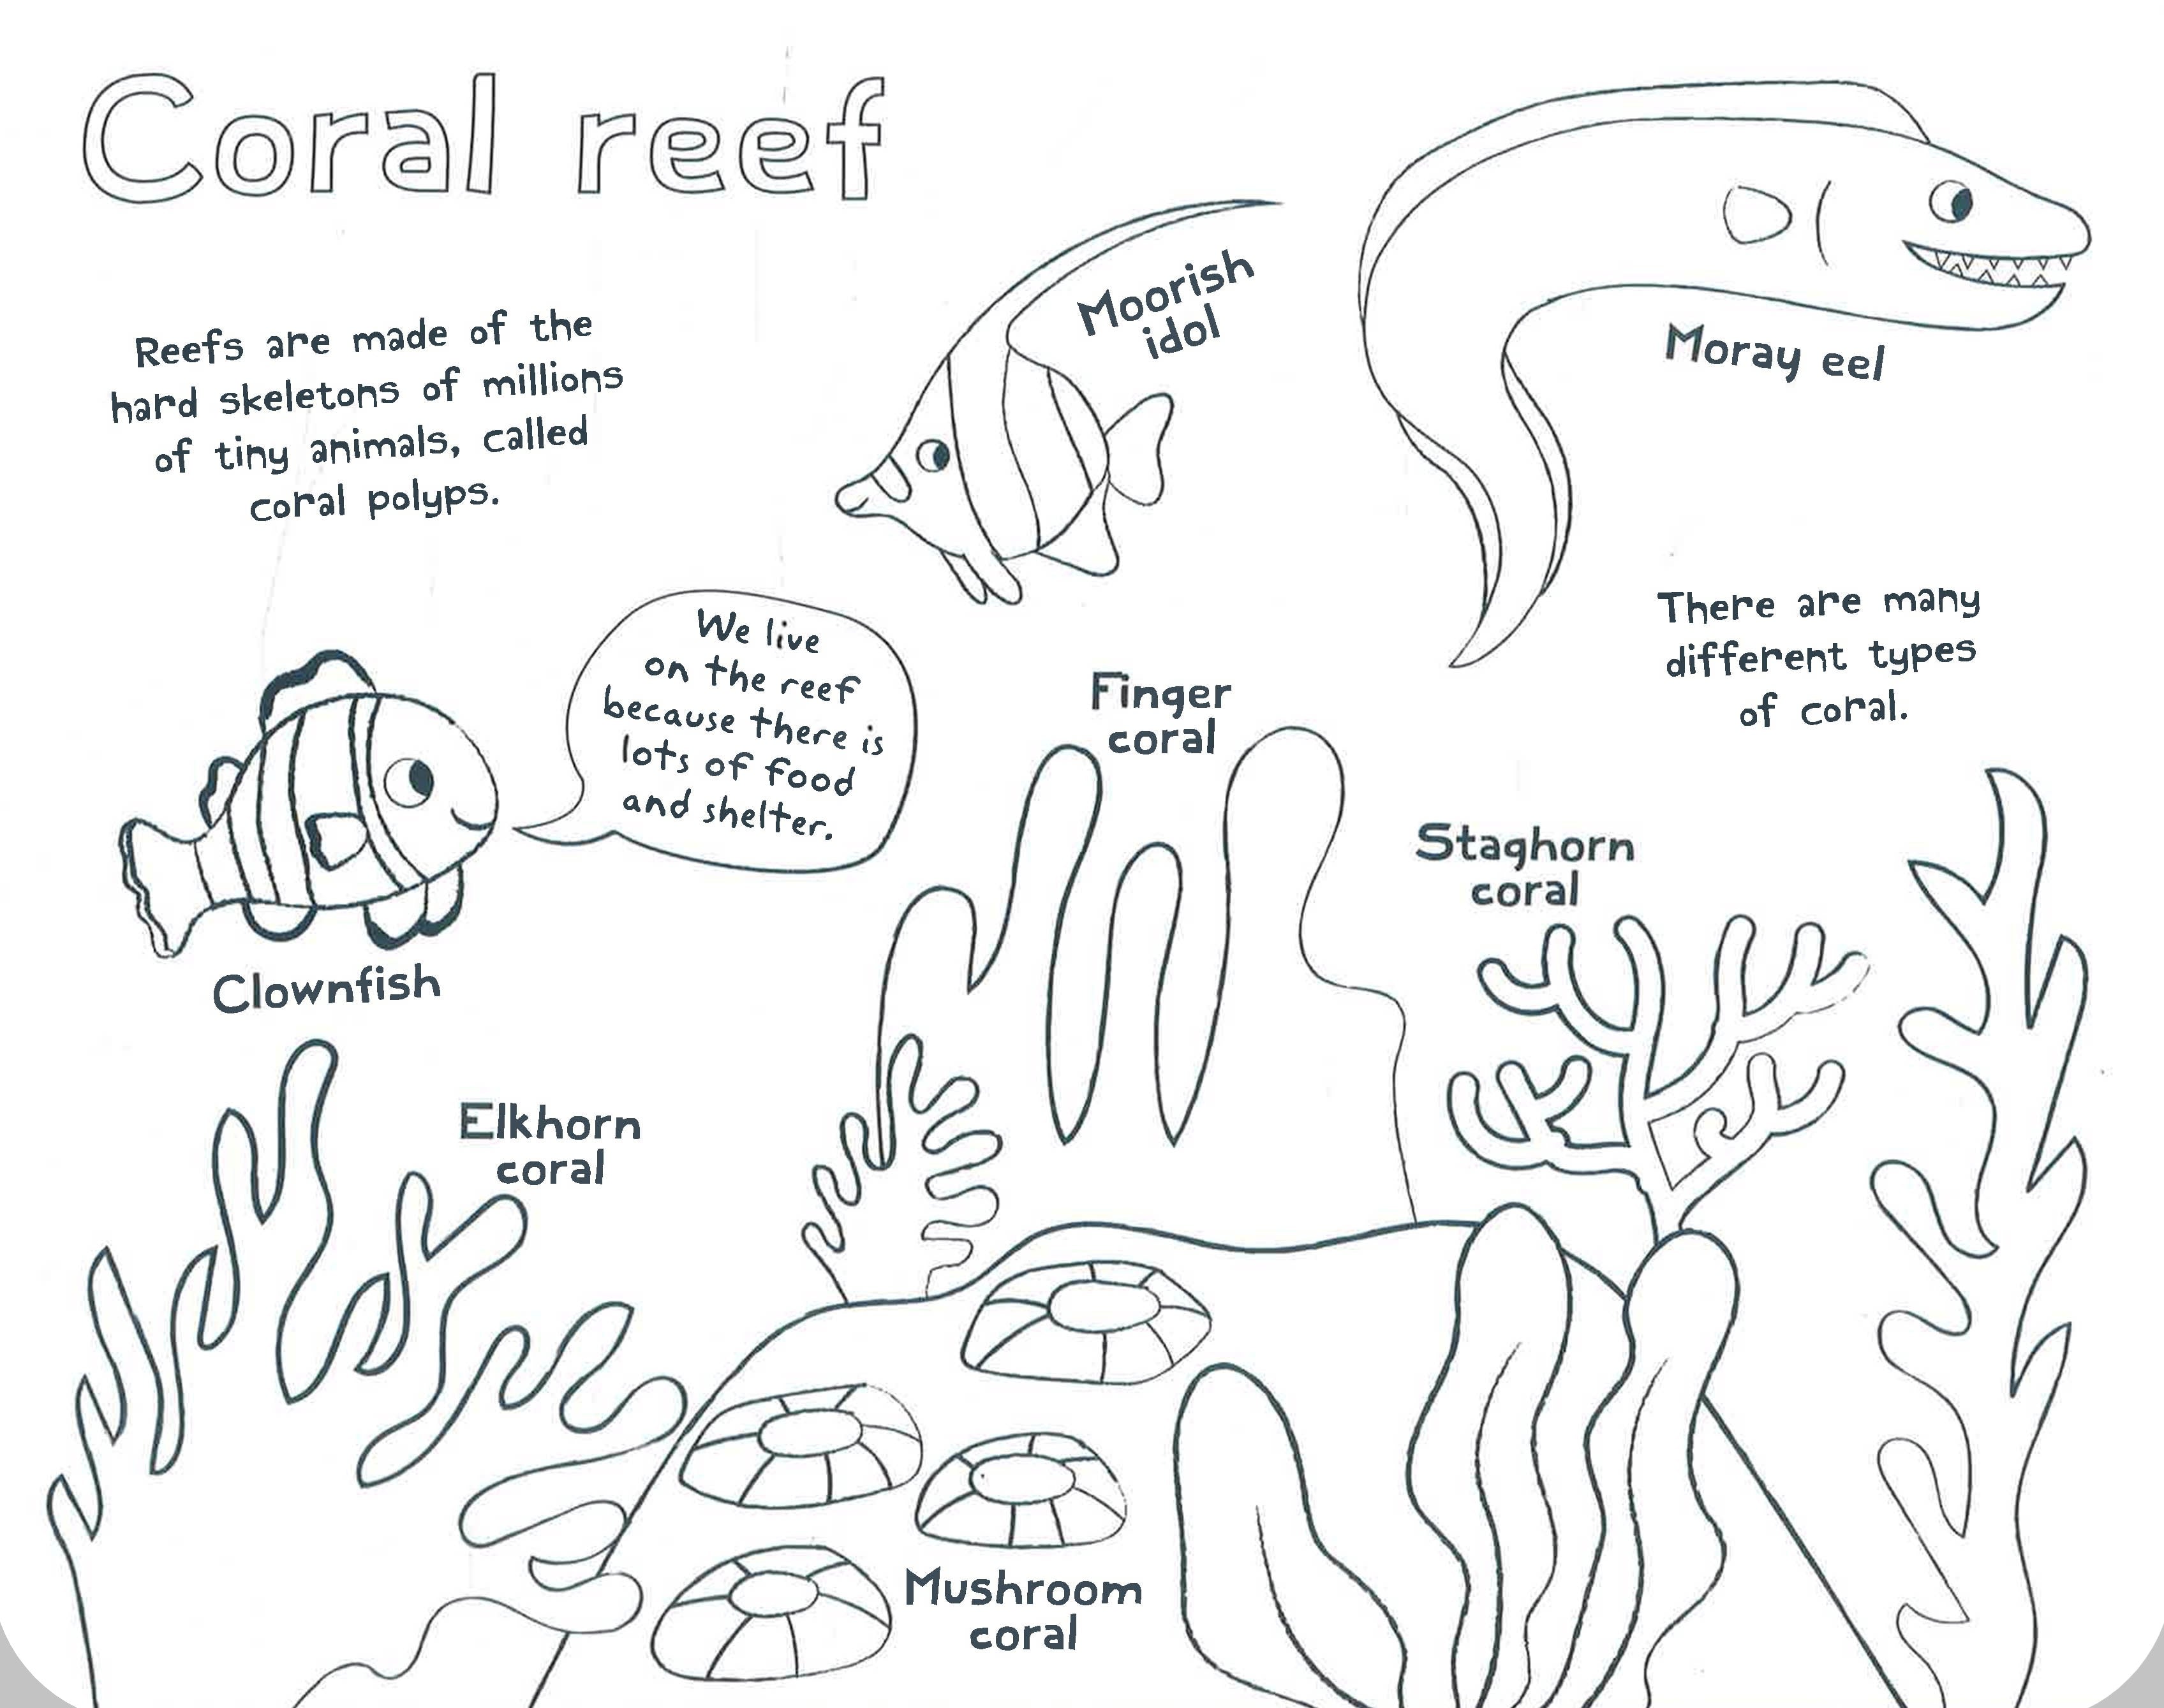 Coral reef
Reefs are made of the
hard skeletons of millions
of tiny animals, called
coral polyps.
Moorish
idol
Moray eel
There are many
different types
of coral.
We live
on the reef
because there is
lots of food
and shelter.
Clownfish
Finger
coral
Staghorn
coral
Elkhorn
coral
Mushroom
coral